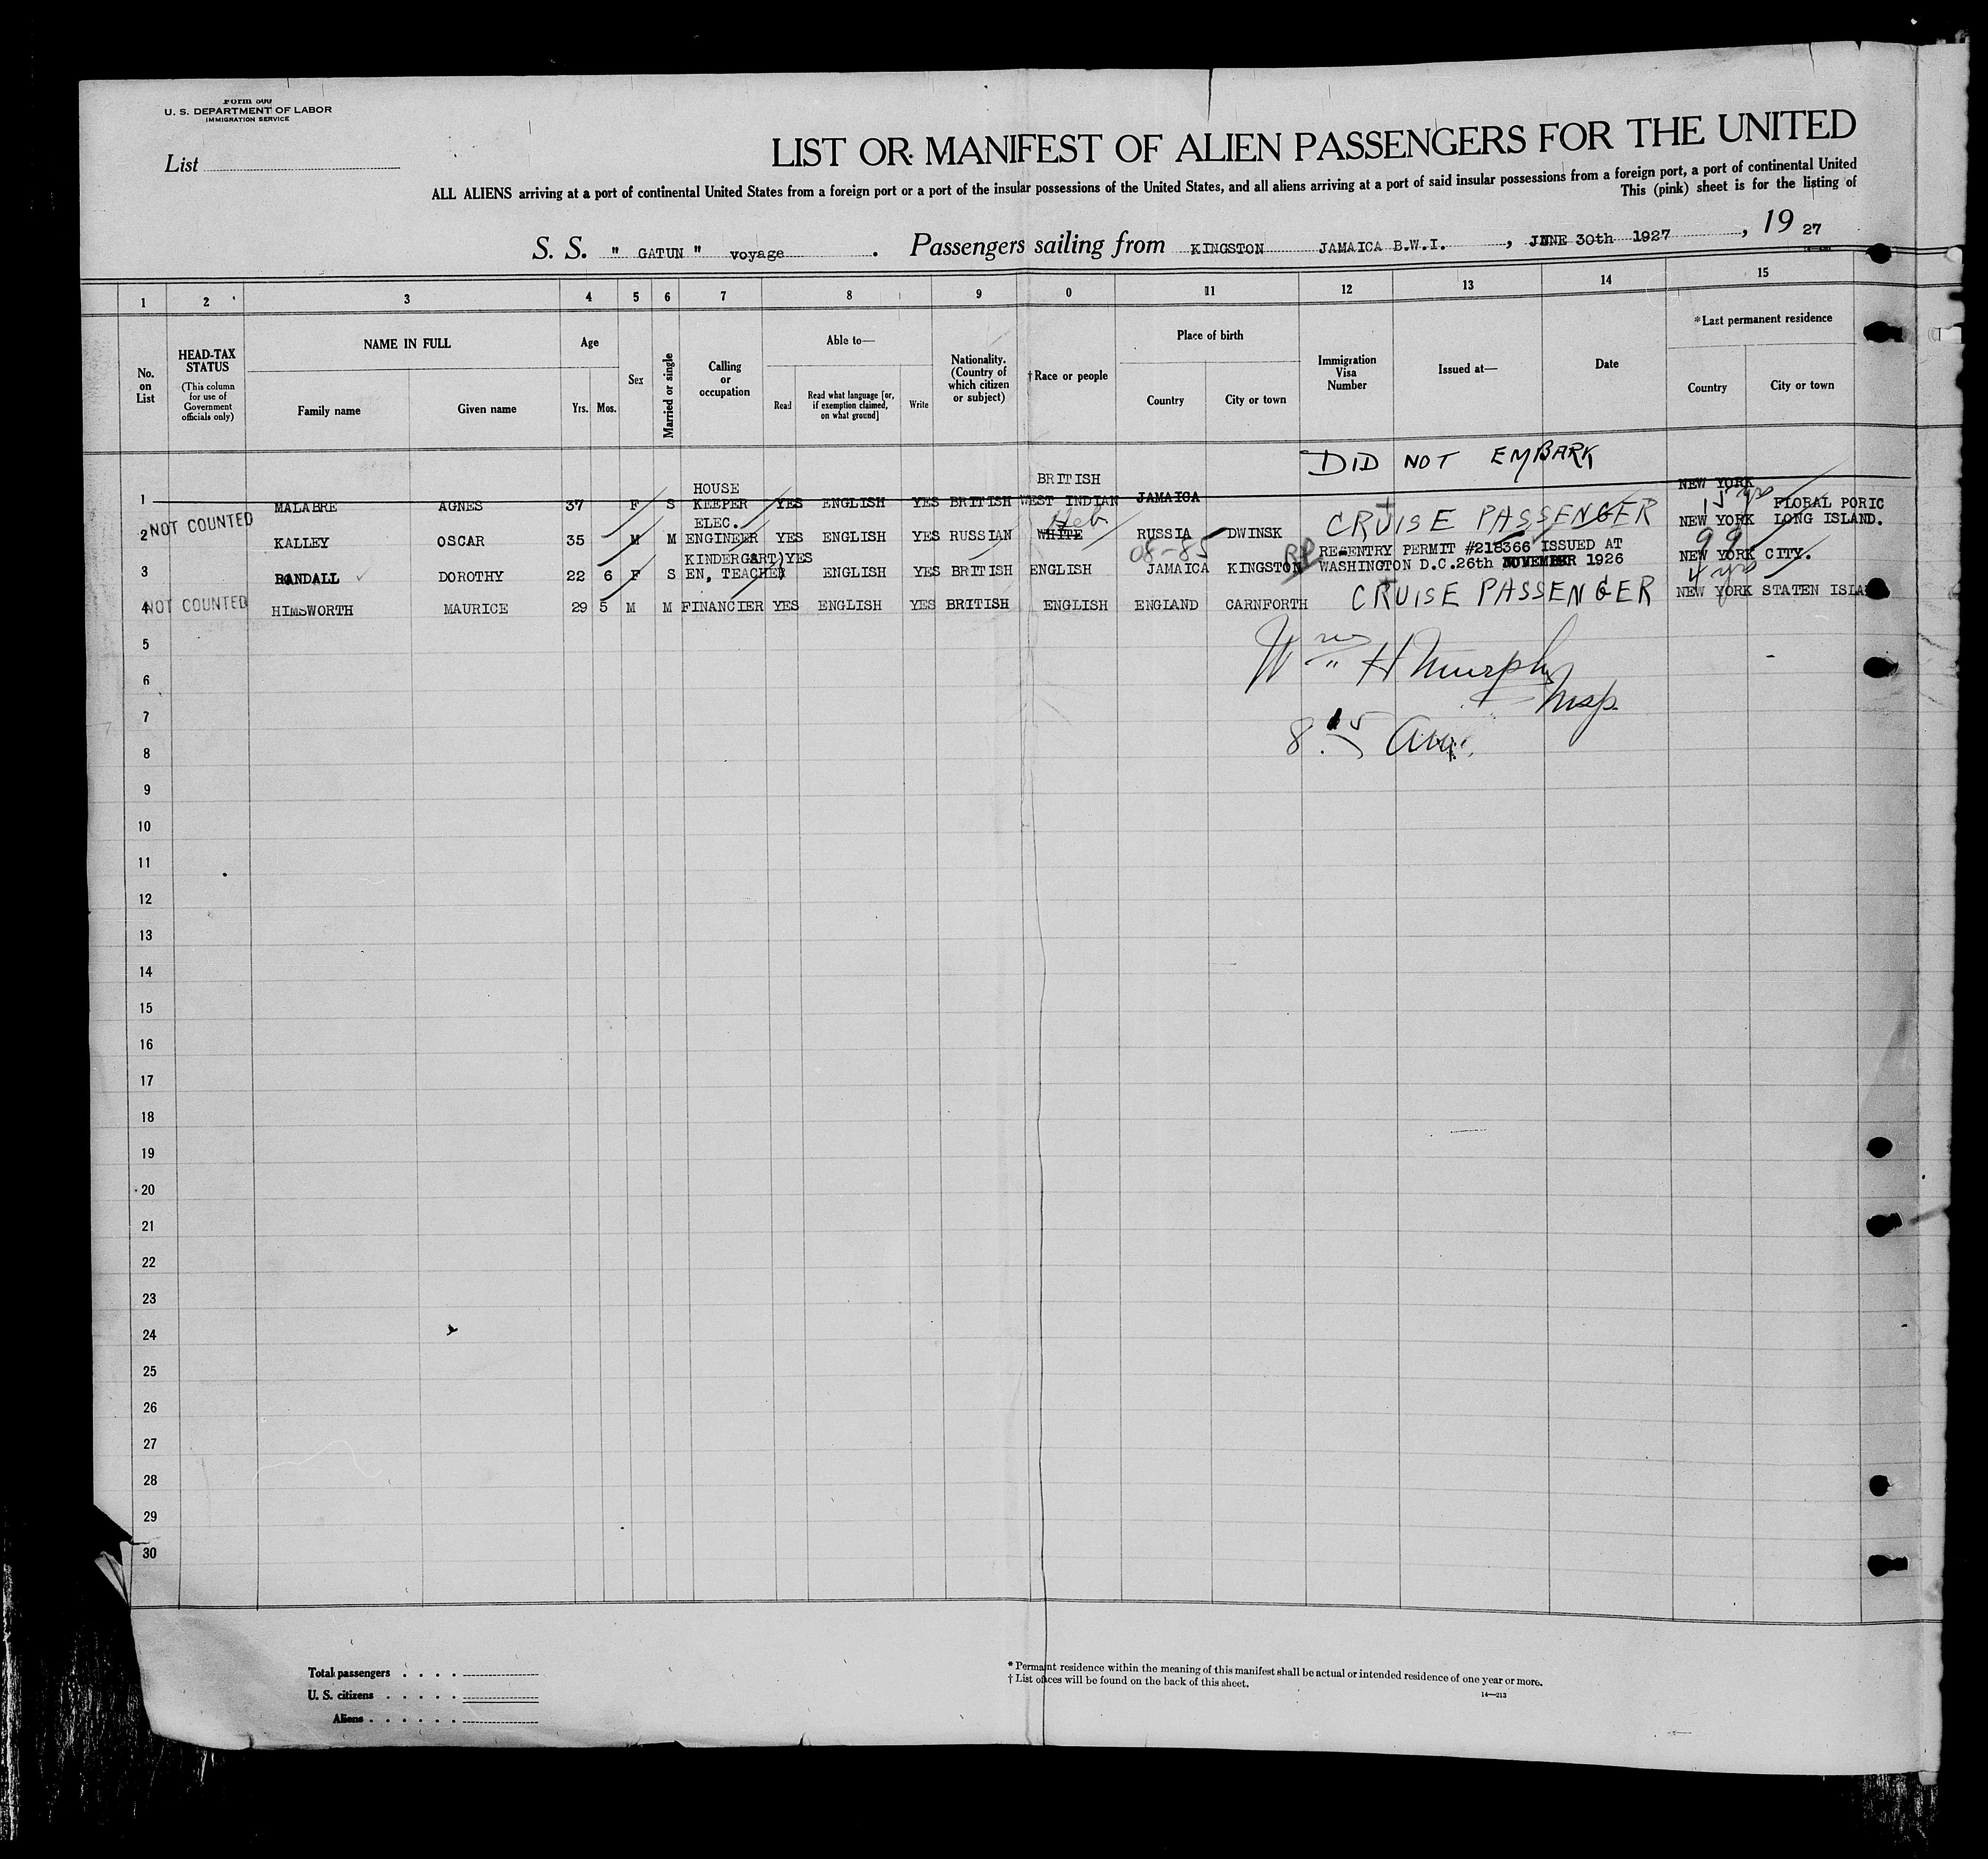 Form 500
U. S. DEPARTMENT OF LABOR
IMMIGRATION SERVICE
List
LIST OR MANIFEST OF ALIEN PASSENGERS FOR THE UNITED
ALL ALIENS arriving at a port of continental United States from a foreign port or a port of the insular possessions of the United States, and all aliens arriving at a port of said insular possessions from a foreign port, a port of continental United
This (pink) sheet is for the listing of
S. S. " GATUN " voyage . Passengers sailing from KINGSTON JAMAICA B.W.I. , JUNE 30th 1927 , 19 27
1 2 3 4 5 6 7 8 9 0 11 12 13 14 15
No. on List
HEAD-TAX STATUS
(This column for use of Government officials only)
NAME IN FULL
Family name
Given name
Age
Yrs. Mos.
Sex
Married or single
Calling or occupation
Able to—
Read
Read what language [or, if exemption claimed, on what ground]
Write
Nationality. (Country of which citizen or subject)
† Race or people
Place of birth
Country
City or town
Immigration Visa Number
Issued at—
Date
* Last permanent residence
Country
City or town
DID NOT EMBARK
HOUSE BRITISH NEW YORK
1 MALABRE AGNES 37 F S KEEPER YES ENGLISH YES BRITISH WEST INDIAN JAMAICA
15 yrs FLORAL PORIC
NOT COUNTED ELEC. Heb CRUISE PASSENGER NEW YORK LONG ISLAND.
2 KALLEY OSCAR 35 M M ENGINEER YES ENGLISH YES RUSSIAN WHITE RUSSIA DWINSK
KINDERGART) YES 08-85 RP REENTRY PERMIT #218366 ISSUED AT NEW YORK CITY.
3 RANDALL DOROTHY 22 6 F S EN, TEACHER ENGLISH YES BRITISH ENGLISH JAMAICA KINGSTON WASHINGTON D.C. 26th NOVEMBER 1926
4 yrs
NOT COUNTED CRUISE PASSENGER NEW YORK STATEN
4 HIMSWORTH MAURICE 29 5 M M FINANCIER YES ENGLISH YES BRITISH ENGLISH ENGLAND CARNFORTH
Wm H Murphy
Insp.
5
6
7
8
9
10
11
12
13
14
15
16
17
18
19
20
21
22
23
24
25
26
27
28
29
30
Total passengers . . . .
U. S. citizens . . . . .
Aliens . . . . . .
* Perma nt residence within the meaning of this manifest shall be actual or intended residence of one year or more.
† List of ces will be found on the back of this sheet.
14—213